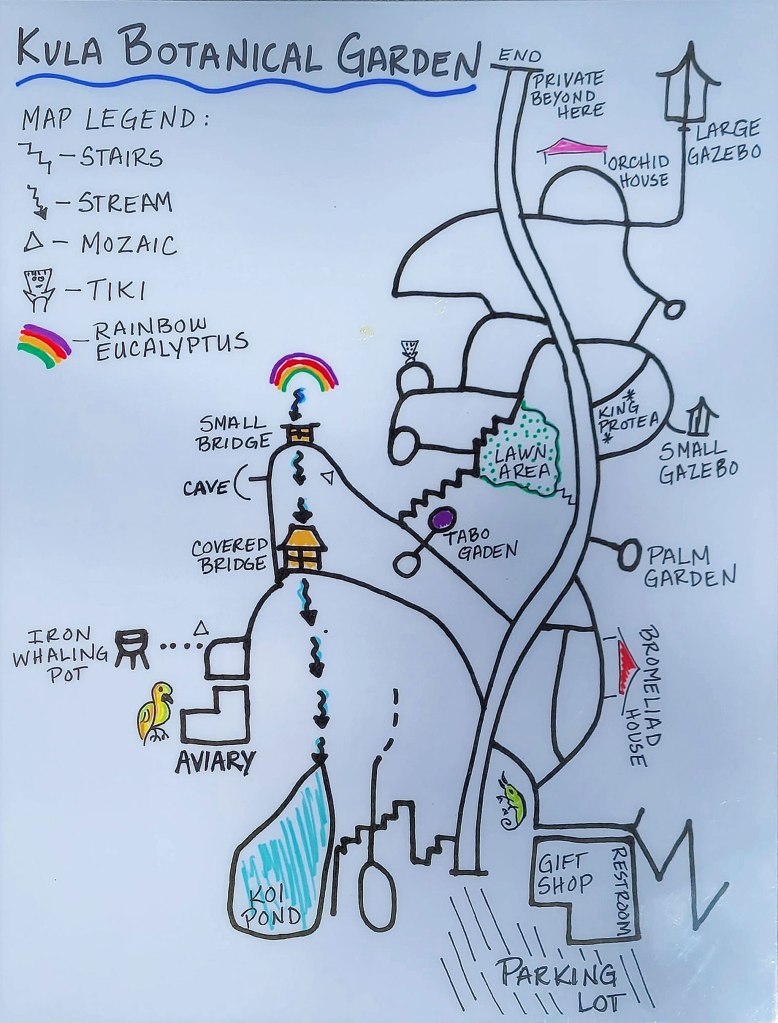 KULA BOTANICAL GARDEN
MAP LEGEND:
- STAIRS
- STREAM
- MOZAIC
- TIKI
- RAINBOW
EUCALYPTUS
END
PRIVATE
BEYOND
HERE
LARGE
GAZEBO
ORCHID
HOUSE
KING
PROTEA
SMALL
GAZEBO
SMALL
BRIDGE
CAVE
LAWN
AREA
COVERED
BRIDGE
TABO
GADEN
PALM
GARDEN
IRON
WHALING
POT
BROMELIAD
HOUSE
AVIARY
KOI
POND
GIFT
SHOP
RESTROOM
PARKING
LOT